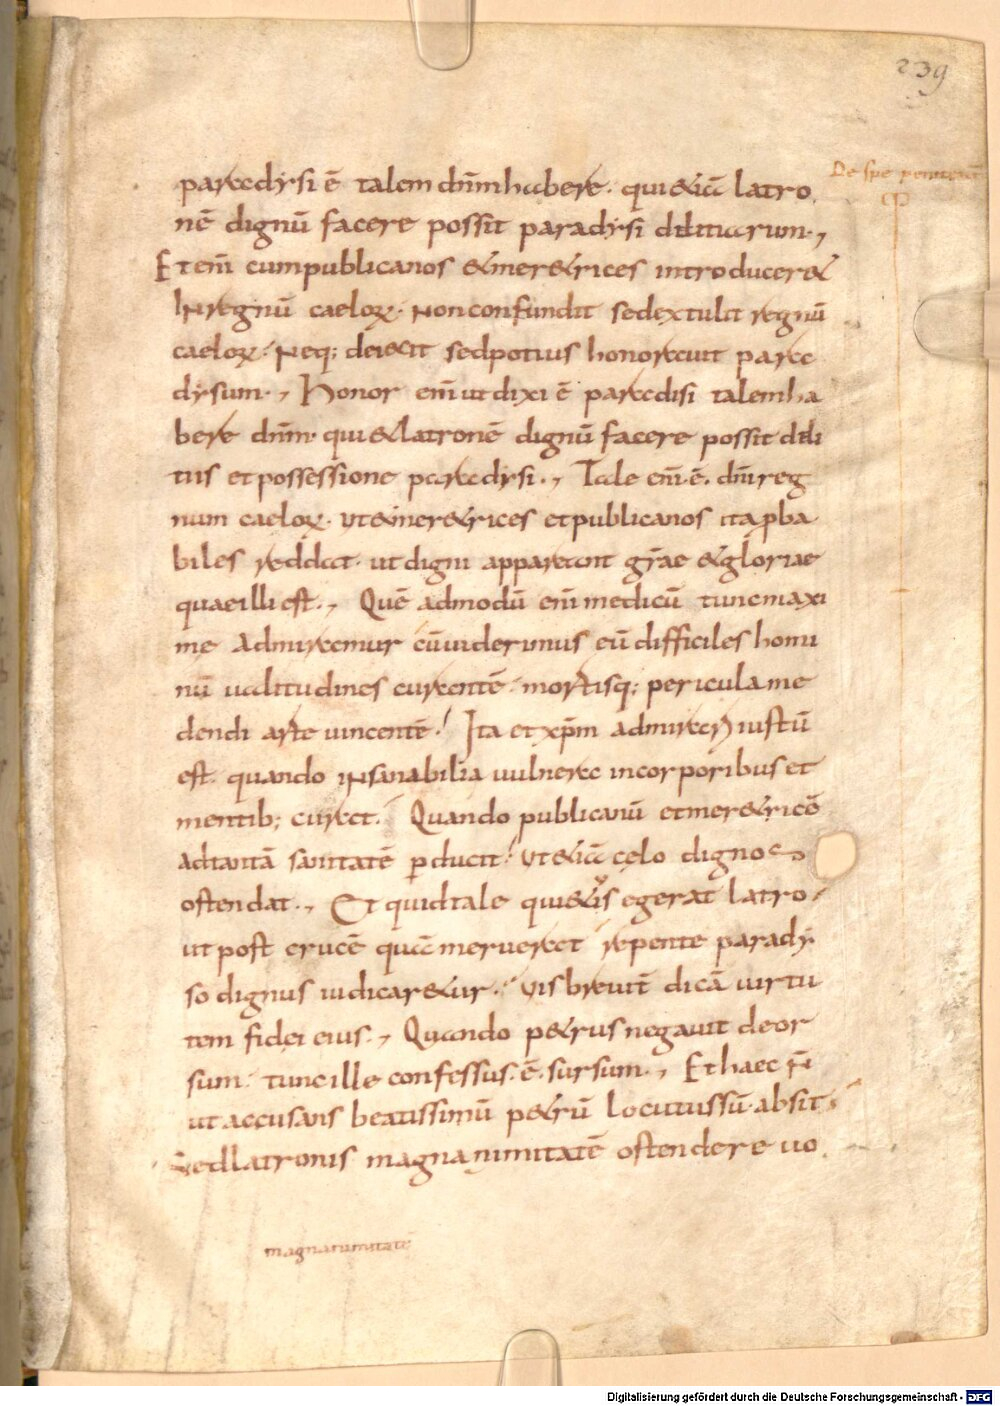 239
De spe
paradysi ē talem dn̄m habere. qui &iā latro
nē dignū facere possit paradysi dilitiarum.,
Et enī cum publicanos & mer&rices introducer&
IN regnū caeloꝝ. Non confundit sed extulit regnū
caeloꝝ. Neq; deiecit sed potius honorauit para
dysum., Honor enī ut dixi ē paradisi talem ha
bere dn̄m. qui & latronē dignū facere possit dili
tiis et possessione paradysi., Tale enī ē. dn̄i reg
num caeloꝝ. ut & mer&rices et publicanos ita ꝓba
biles reddat. ut digni appareant gr̄ae & gloriae
quae illi est., Quē admodū enī medicū tunc maxi
me admiramur cū uiderimus eū difficiles homi
nū ualitudines curantē. mortisq; pericula me
dendi arte uincentē! Ita et xp̄m admirari iustū
est. quando insanabilia uulnera in corporibus et
mentib; curat. Quando publicanū et mer&ricē
ad tantā sanitatē ꝑducit! ut &iā cęlo dignos
ostendat., Et quid tale qui &is egerat latro
ut post crucē quā meruerat repente parady
so dignus iudicar&ur. Vis breuit̄ dicā uirtu
tem fidei eius., Quando p&rus negauit deor
sum. tunc ille confessus. ē. sursum., Et haec n̄
ut accusans beatissimū p&rū locutus sū. absit.
Sed latronis magnanimitatē ostendere uo
magnanimitatē
Digitalisierung gefördert durch die Deutsche Forschungsgemeinschaft - DFG